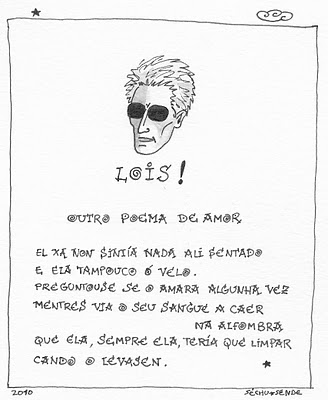 LOIS!
OUTRO POEMA DE AMOR
EL XA NON SINTÍA NADA ALI SENTADO
E ELA TAMPOUCO Ó VELO.
PREGUNTOUSE SE O AMARA ALGUNHA VEZ
MENTRES VIA O SEU SANGUE A CAER
NA ALFOMBRA
QUE ELA, SEMPRE ELA, TERÍA QUE LIMPAR
CANDO O LEVASEN.
2010
SÉCHU SENDE